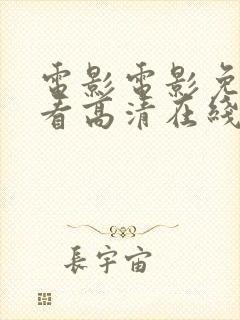 電影電影免
看高清在綫
長宇宙